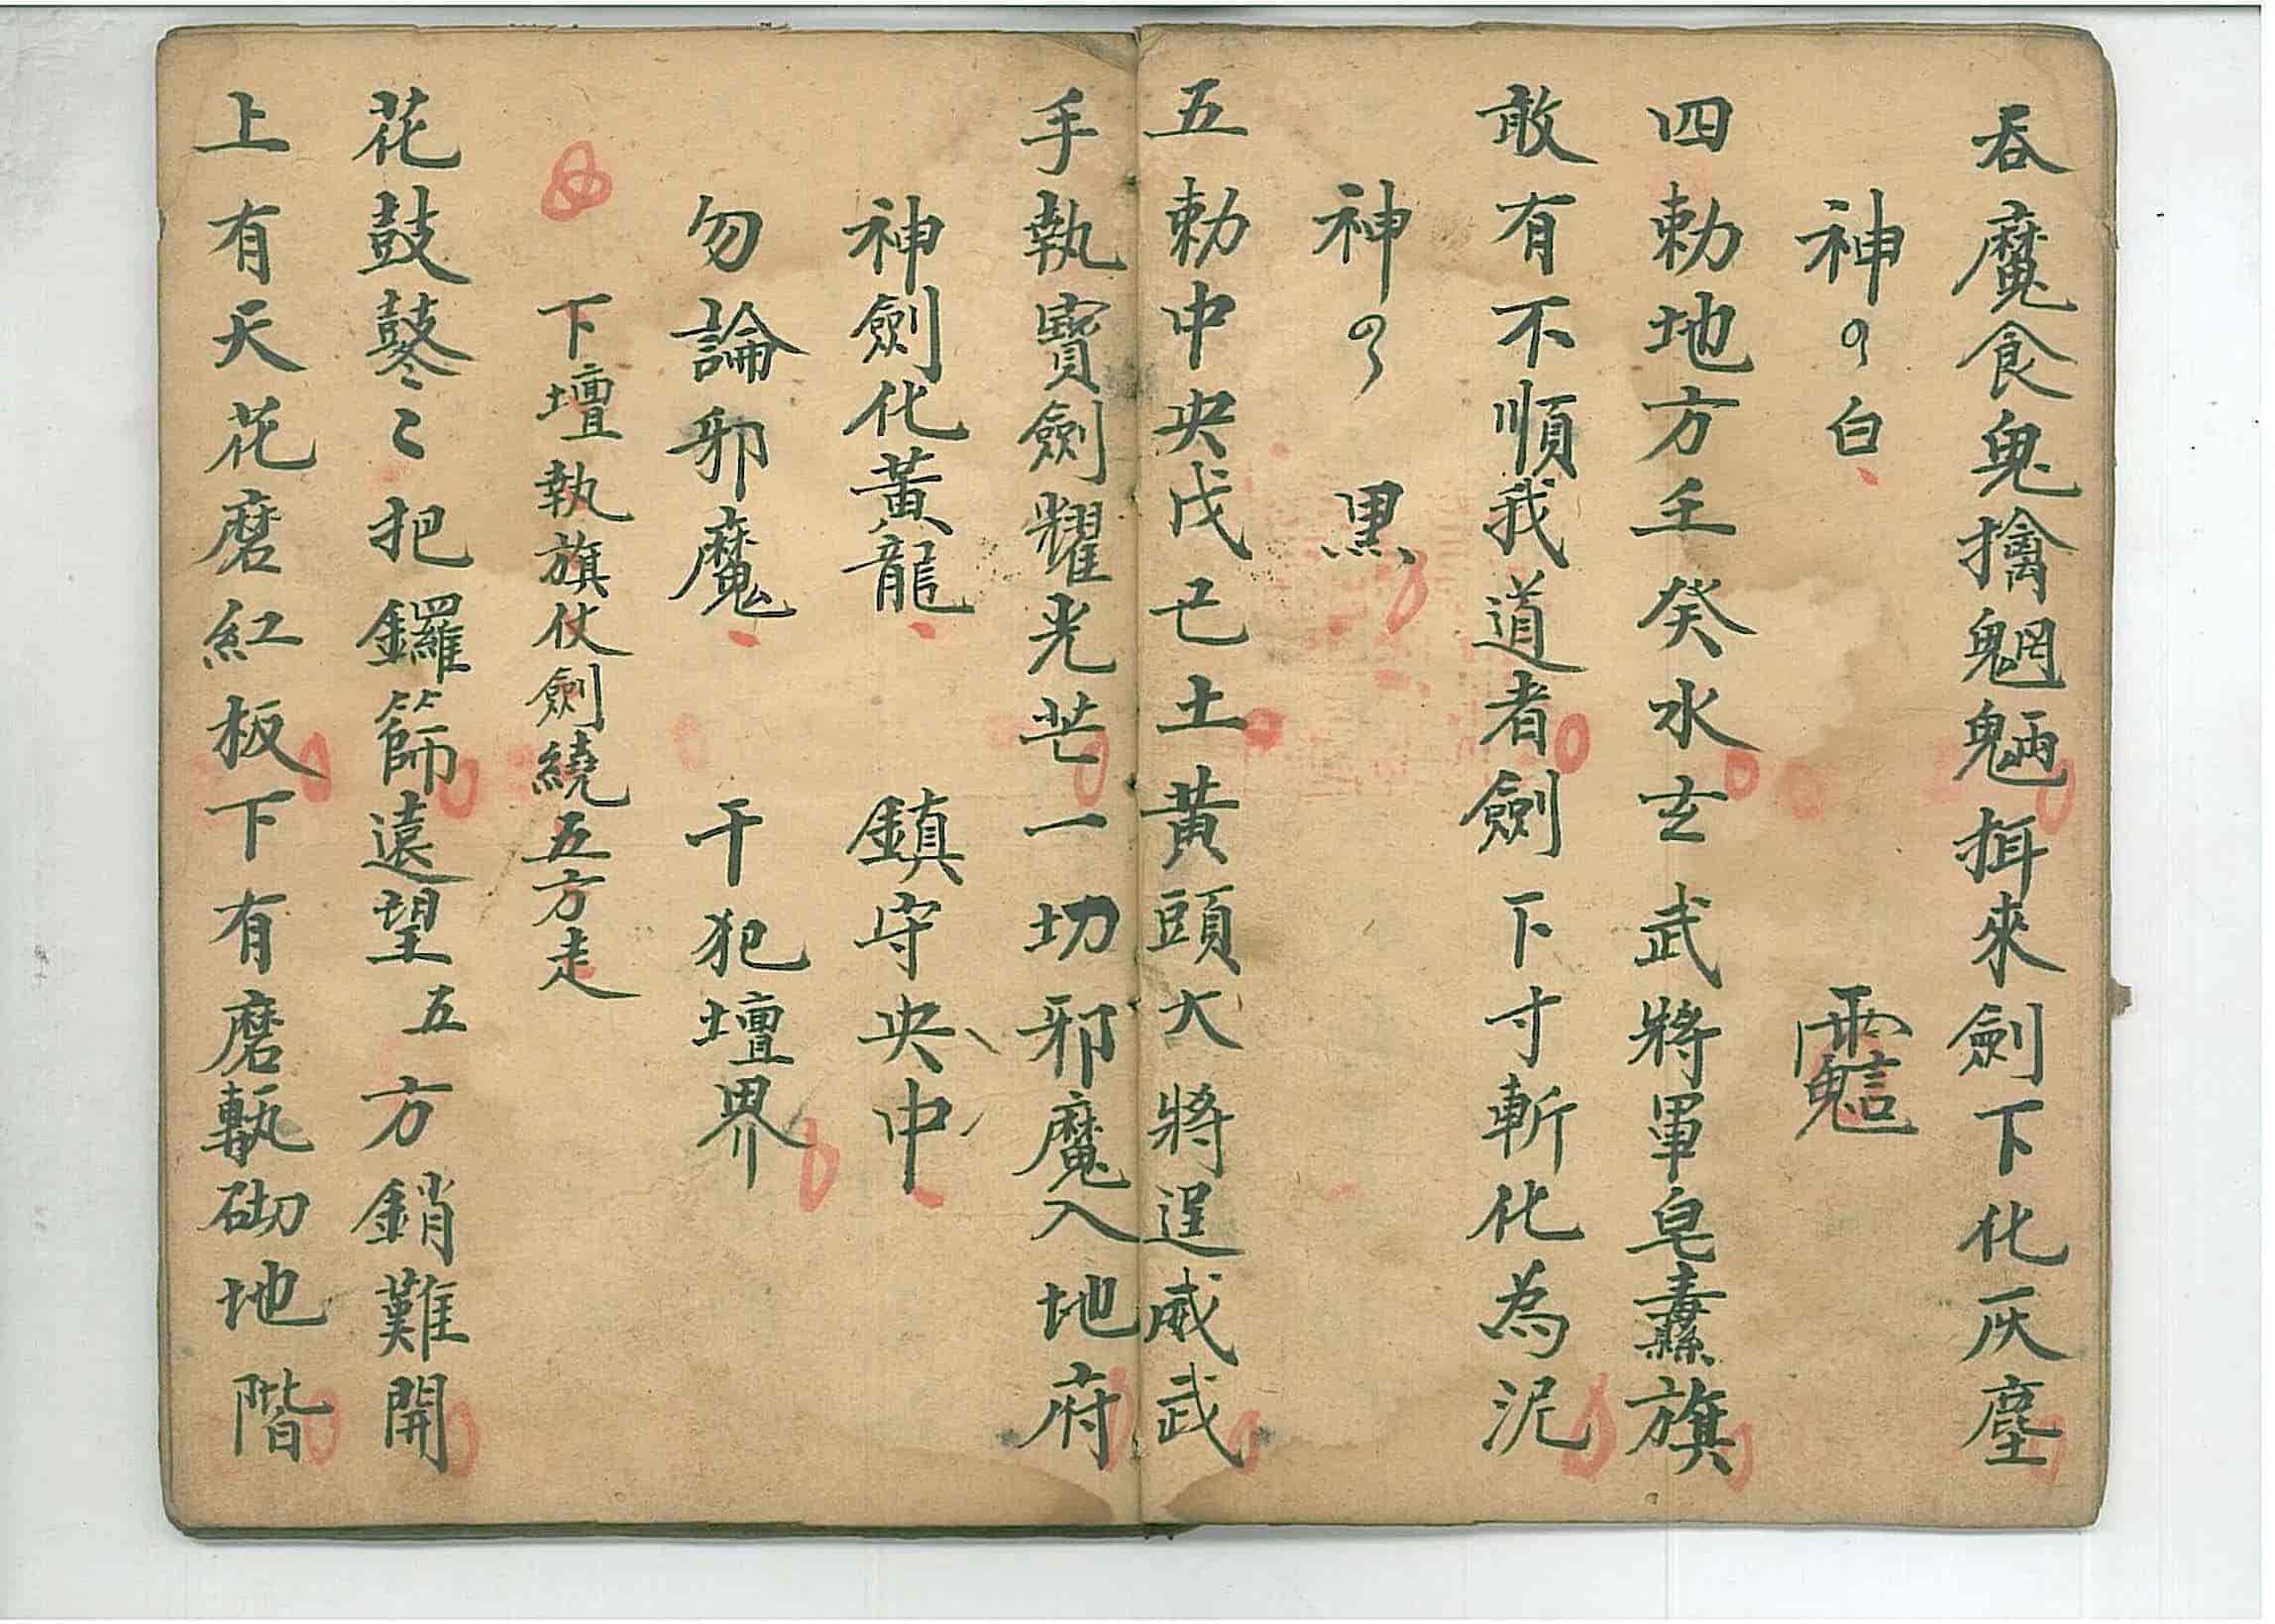 吞魔食鬼擒魍魎揖來劍下化灰塵
神〻白
四勅地方壬癸水玄武將軍皂纛旗
敢有不順我道者劍下寸斬化為泥
神〻黑
五勅中央戊己土黃頭大將逞威武
手執寶劍耀光芒一切邪魔入地府
神劍化黃龍 鎮守央中
勿論邪魔 干犯壇界
下壇執旗仗劍繞五方走
花鼓鼕〻把鑼篩遠望五方銷難開
上有天花磨紅板下有磨磚砌地階